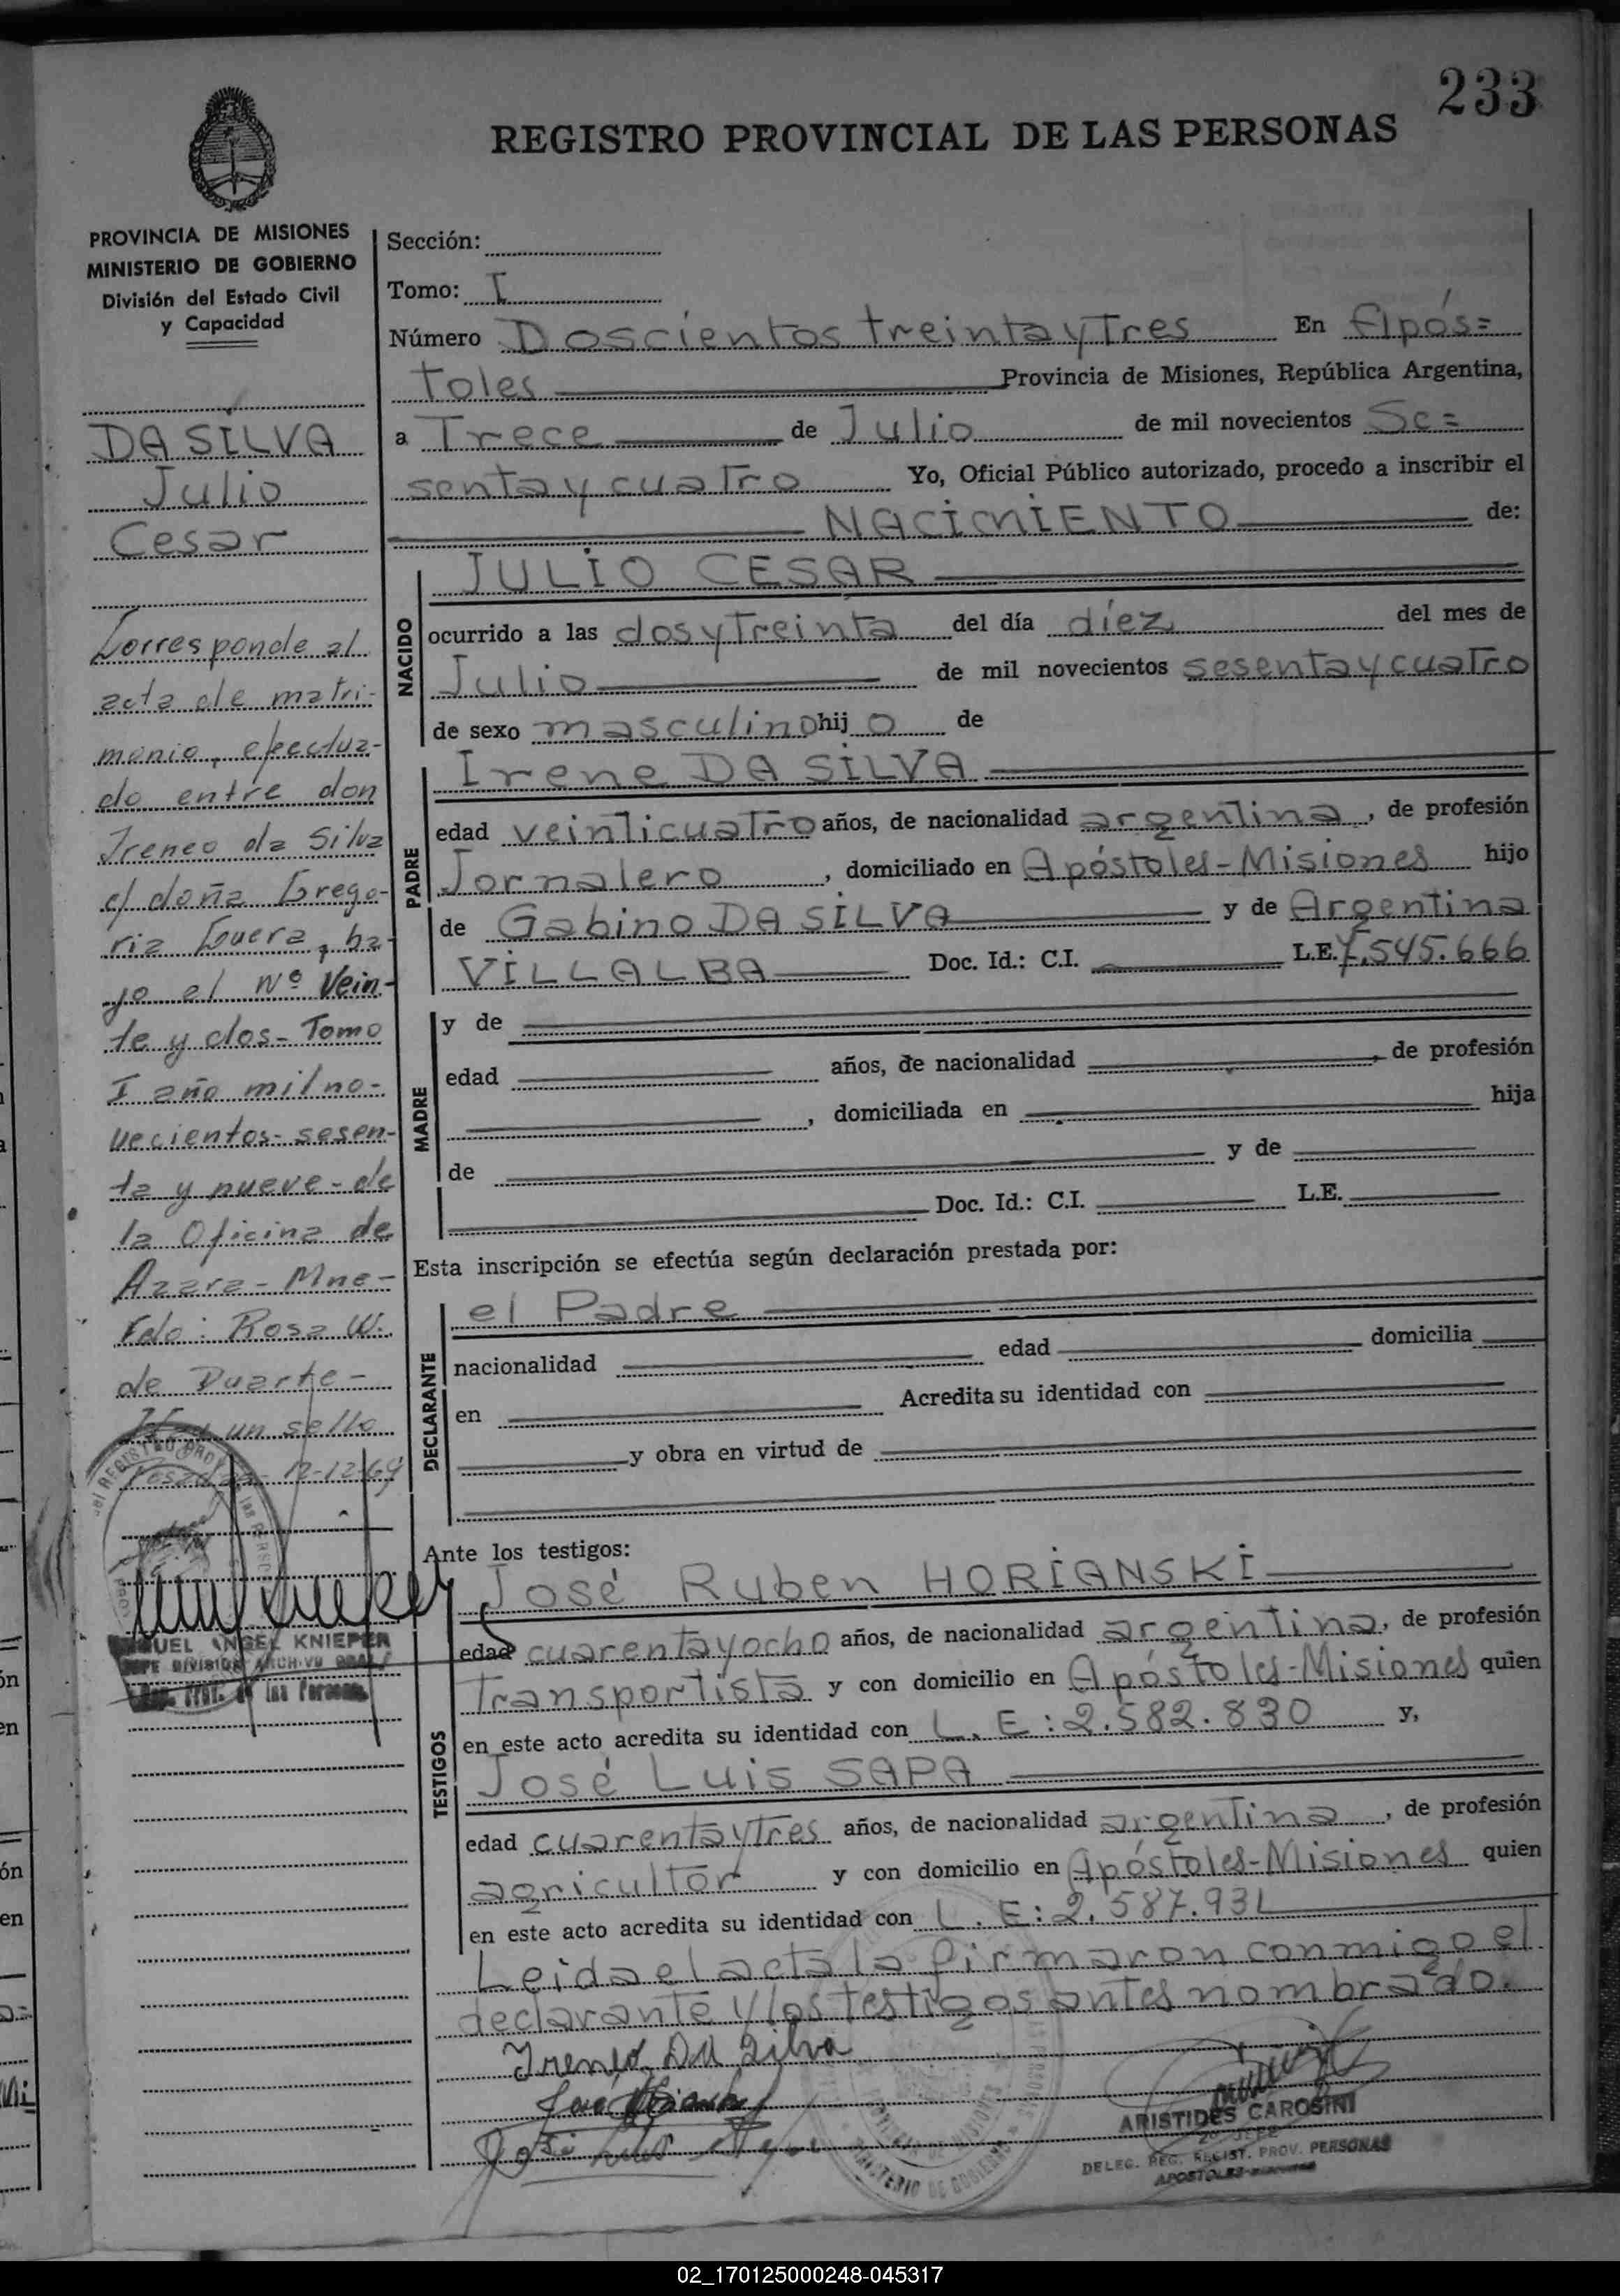 233
REGISTRO PROVINCIAL DE LAS PERSONAS
PROVINCIA DE MISIONES
MINISTERIO DE GOBIERNO
División del Estado Civil
y Capacidad
DA SILVA
Julio
Cesar
Corresponde al
acta de matri-
monio, efectua-
do entre don
Ireneo da Silva
c/ doña Grego-
ria Guera, ba-
jo el Nº Vein-
te y dos- Tomo
I año mil no-
vecientos- sesen-
ta y nueve- de
la Oficina de
Azara- Mnes-
Fdo: Rosa W.
de Duarte-
Hay un sello
Posadas- 12-12-69
MIGUEL ANGEL KNIEPER
JEFE DIVISION ARCHIVO GRAL.
Reg. Prov. de las Personas
Sección:
Tomo: I
Número Doscientos treinta y Tres En Após=
toles Provincia de Misiones, República Argentina,
a Trece de Julio de mil novecientos Se=
senta y cuatro Yo, Oficial Público autorizado, procedo a inscribir el
NACIMIENTO de:
NACIDO
JULIO CESAR
ocurrido a las dos y Treinta del día diez del mes de
Julio de mil novecientos sesenta y cuatro
de sexo masculino hijo de
PADRE
Irene DA SILVA
edad veinticuatro años, de nacionalidad argentina, de profesión
Jornalero, domiciliado en Apóstoles-Misiones hijo
de Gabino DA SILVA y de Argentina
VILLALBA Doc. Id.: C.I. L.E. 7.545.666
MADRE
y de
edad años, de nacionalidad , de profesión
, domiciliada en hija
de y de
Doc. Id.: C.I. L.E.
Esta inscripción se efectúa según declaración prestada por:
DECLARANTE
el Padre
nacionalidad edad domicilia
en Acredita su identidad con
y obra en virtud de
Ante los testigos:
TESTIGOS
José Ruben HORIANSKI
edad cuarenta y ocho años, de nacionalidad argentina, de profesión
Transportista y con domicilio en Apóstoles-Misiones quien
en este acto acredita su identidad con L.E: 2.582.830 y,
José Luis SAPA
edad cuarenta y Tres años, de nacionalidad argentina, de profesión
agricultor y con domicilio en Apóstoles-Misiones quien
en este acto acredita su identidad con L.E: 2.587.931
Leida el acta la firmaron conmigo el
declarante y los testigos antes nombrado.
Ireneo Da Silva
José
José Luis
ARISTIDES CAROSINI
2º JEFE
DELEG. REG. REGIST. PROV. PERSONAS
APOSTOLES-MISIONES
02_170125000248-045317